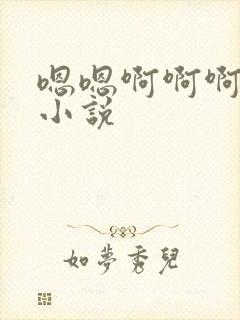 嗯嗯啊啊啊
小說
如夢秀兒